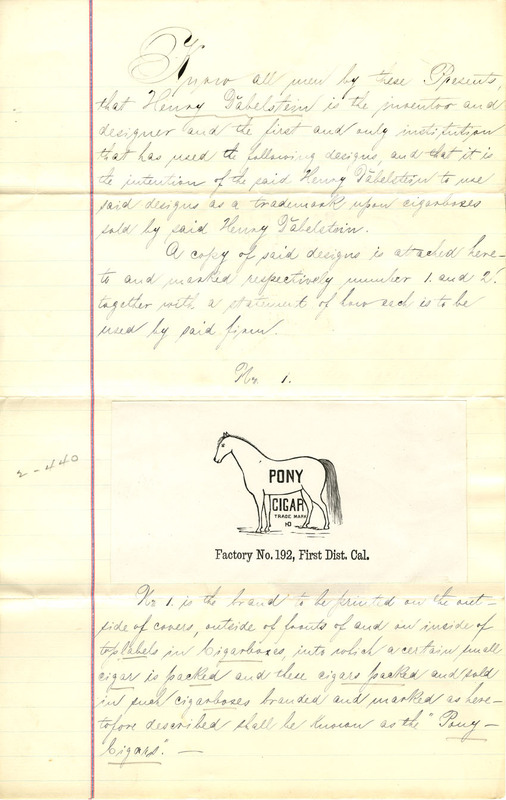 Know all men by these Presents,
that Henry Tabelstein is the inventor and
designer and the first and only institution
that has used the following designs, and that it is
the intention of the said Henry Tabelstein to use
said designs as a trademark upon cigarboxes
sold by said Henry Tabelstein.
A copy of said designs is attached here-
to and marked respectively number 1. and 2.
together with a statement of how each is to be
used by said firm.
No. 1.
2-440
PONY
CIGAR
TRADE MARK
Factory No. 192, First Dist. Cal.
No 1. is the brand to be printed on the out-
side of covers, outside of fronts of and on inside of
toplabels in Cigarboxes, into which a certain small
cigar is packed and these cigars packed and sold
in such cigarboxes branded and marked as here-
tofore described shall be known as the "Pony-
Cigars". —